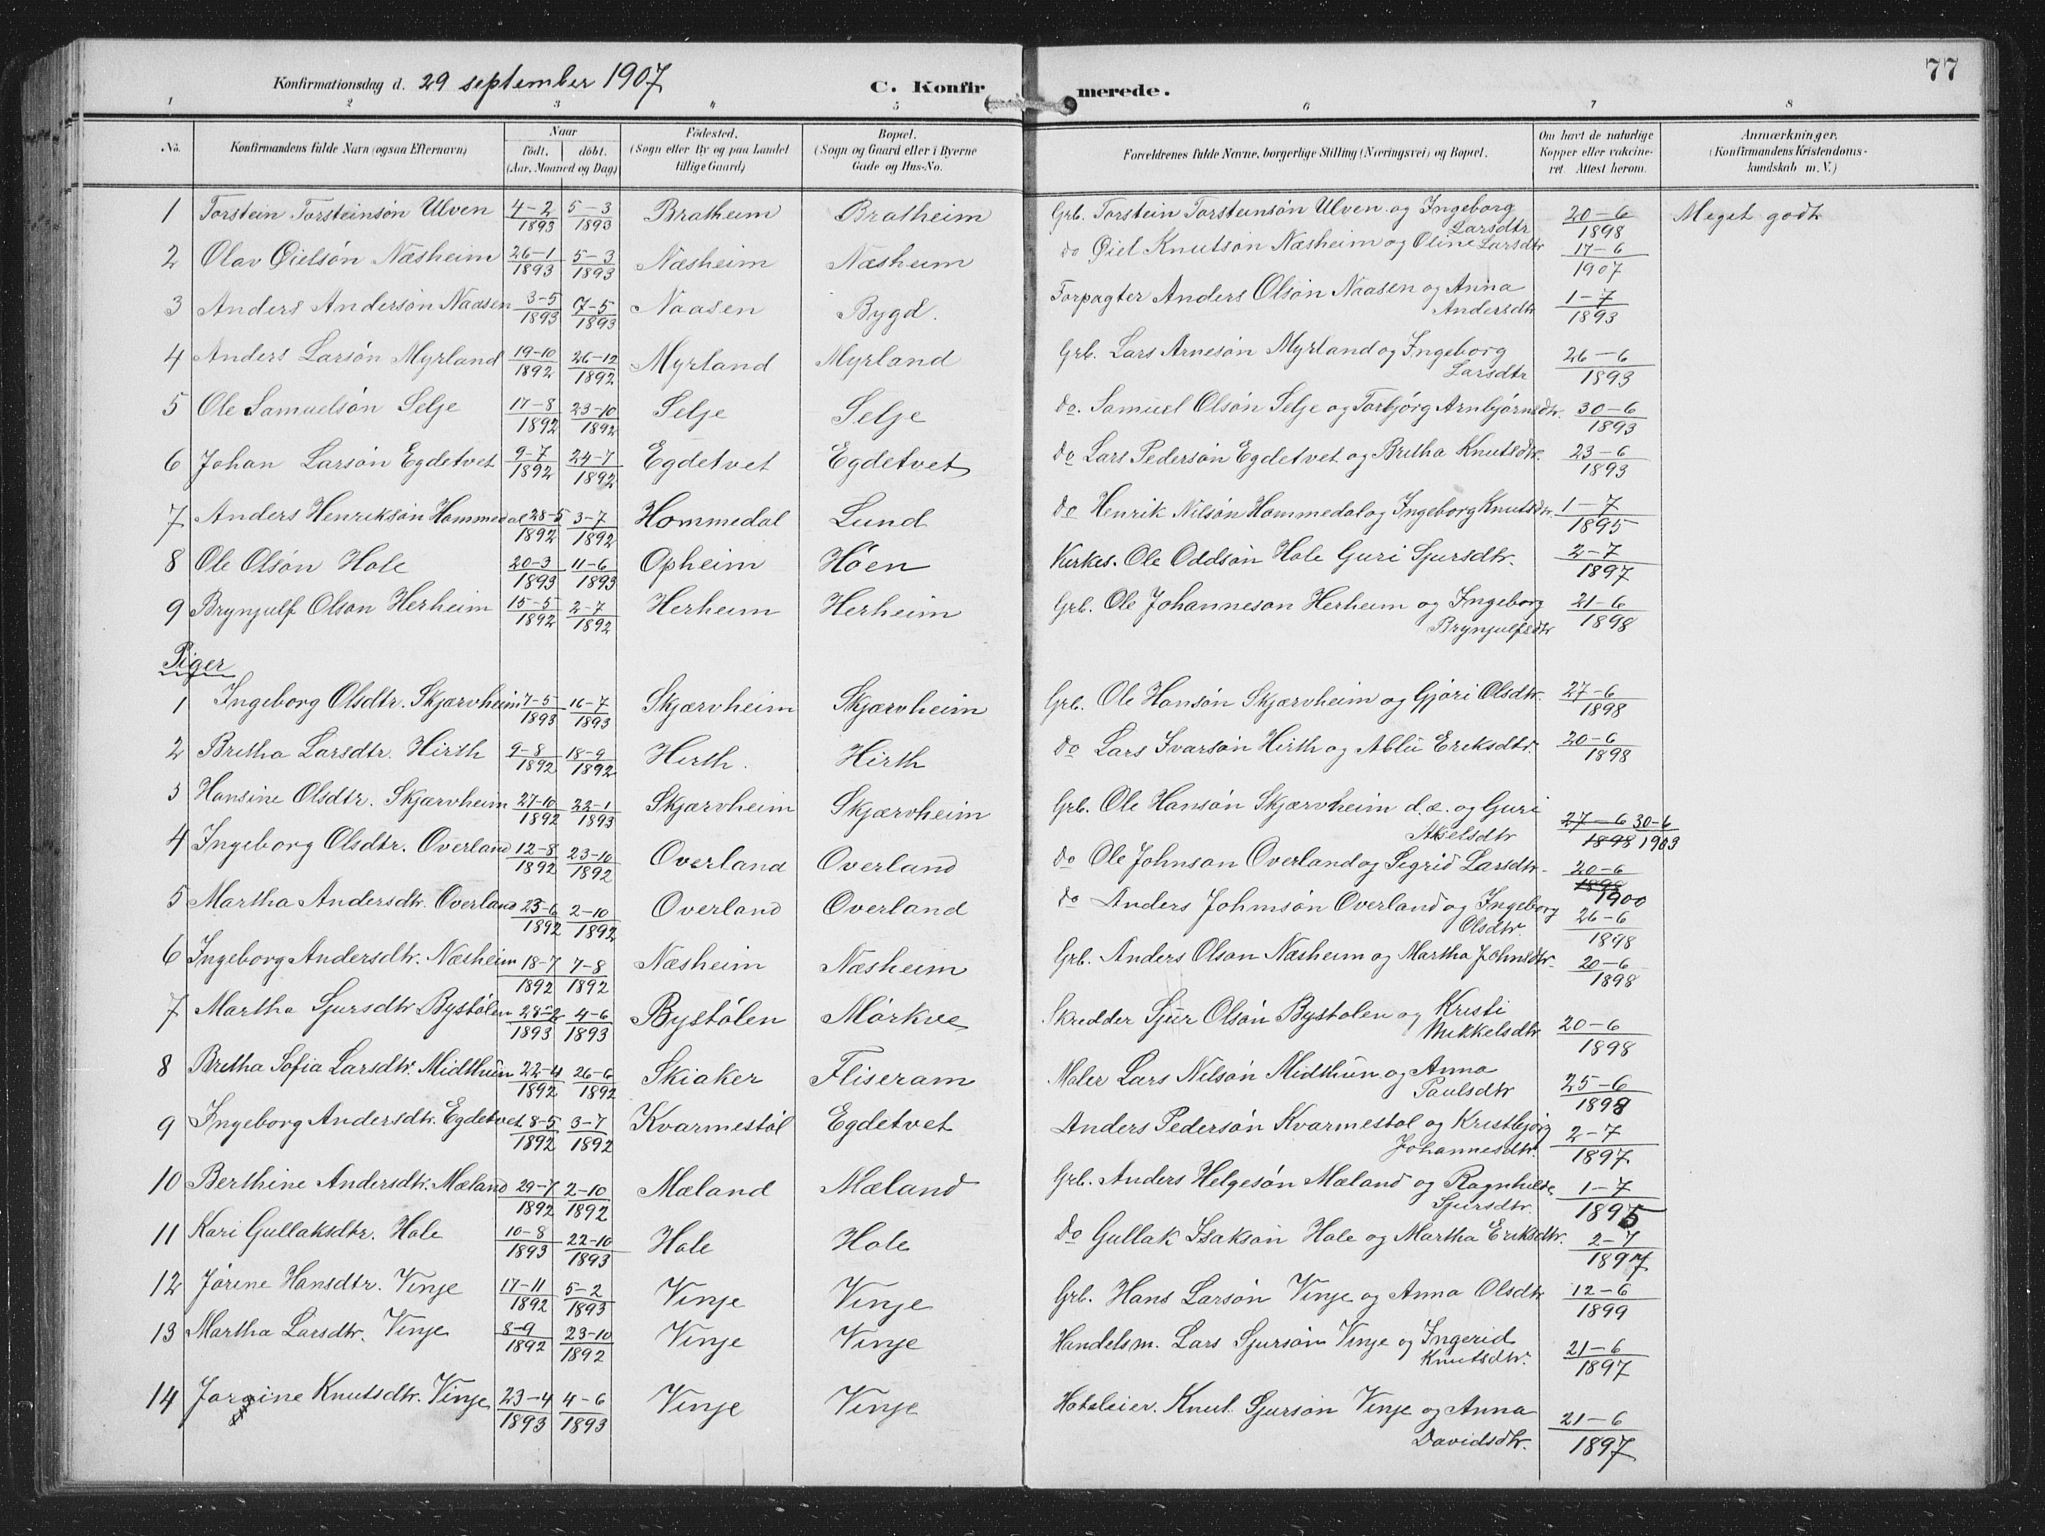 77
Konfirmationsdag d. 29 september 1907 C. Konfirmerede.
1 2 3 4 5 6 7 8
No. Konfirmandens fulde Navn (ogsaa Efternavn) Naar födt. döbt. (Aar, Maaned og Dag) Födested. (Sogn eller By og paa Landet tillige Gaard) Bopæl. (Sogn og Gaard eller i Byerne Gade og Hus-No. Forældrenes fulde Navne, borgerlige Stilling (Næringsvei) og Bopæl. Om havt de naturlige Kopper eller vakcineret. Attest herom. Anmærkninger. (Konfirmandens Kristendomskundskab m. V.)
1 Torstein Torsteinsön Ulven 4-2 1893 5-3 1893 Bratheim Bratheim Grb. Torstein Torsteinsön Ulven og Ingeborg Larsdtr 20-6 1898 Meget godt
2 Olav Öielsön Næsheim 26-1 1893 5-3 1893 Næsheim Næsheim do Öiel Knutsön Næsheim og Oline Larsdtr 17-6 1907
3 Anders Andersön Naasen 3-5 1893 7-5 1893 Naasen Bygd. Forpagter Anders Olsön Naasen og Anna Andersdtr 1-7 1893
4 Anders Larsön Myrland 19-10 1892 26-12 1892 Myrland Myrland Grb. Lars Arnesön Myrland og Ingeborg Larsdtr 26-6 1893
5 Ole Samuelsön Selje 17-8 1892 23-10 1892 Selje Selje do. Samuel Olsön Selje og Torbjörg Arnbjörnsdtr. 30-6 1893
6 Johan Larsön Egdetvet 9-7 1892 24-7 1892 Egdetvet Egdetvet do Lars Pedersön Egdetvet og Britha Knutsdtr. 23-6 1893
7 Anders Henriksön Hommedal 28-5 1892 3-7 1892 Hommedal Lund do Henrik Nilsön Hommedal og Ingeborg Knutsdtr. 1-7 1895
8 Ole Olsön Hole 20-3 1893 11-6 1893 Opheim Höen Kirkes. Ole Oddsön Hole Guri Sjursdtr. 2-7 1897
9 Brynjulf Olson Herheim 15-5 1892 2-7 1892 Herheim Herheim Grb. Ole Johanneson Herheim og Ingeborg Brynjulfsdtr 21-6 1898
Piger
1 Ingeborg Olsdtr. Skjærvheim 7-5 1893 16-7 1893 Skjærvheim Skjærvheim Grb. Ole Hansön Skjærvheim og Gjöri Olsdtr. 27-6 1898
2 Britha Larsdtr. Hirth 9-8 1892 18-9 1892 Hirth. Hirth do Lars Ivarsön Hirth og Ablu Eriksdtr. 20-6 1898
3 Hansine Olsdtr. Skjærvheim 27-10 1892 22-1 1893 Skjærvheim Skjærvheim Grb. Ole Hansön Skjærvheim d.æ. og Guri Akselsdtr 27-6 1898 30-6 1903
4 Ingeborg Olsdtr. Overland 12-8 1892 23-10 1892 Overland Overland do Ole Johnsan Overland og Sigrid Larsdtr. 20-6 1898 1900
5 Martha Andersdtr. Overland 23-6 1892 2-10 1892 Overland Overland do Anders Johnsön Overland og Ingeborg Olsdtr. 26-6 1898
6 Ingeborg Andersdtr. Næsheim 18-7 1892 7-8 1892 Næsheim Næsheim Grb. Anders Olson Næsheim og Martha Johnsdtr. 20-6 1898
7 Martha Sjursdtr Bystölen 28-2 1893 4-6 1893 Bystölen Mörkve Skredder Sjur Olsön Bystolen og Kristi Mikkelsdtr. 20-6 1898
8 Britha Sofia Larsdtr. Midthun 22-4 1892 26-6 1892 Skiaker Fliseram Maler Lars Nilsön Midthun og Anna Paulsdtr 25-6 1898
9 Ingeborg Andersdtr. Egdetvet 8-5 1892 3-7 1892 Kvarmestöl Egdetvet Anders Pedersön Kvarmestöl og Kristbjörg Johannesdtr. 2-7 1897
10 Berthine Andersdtr. Mæland 29-7 1892 2-10 1892 Mæland Mæland Grb. Anders Helgesön Mæland og Ragnhilde Sjursdtr. 1-7 1895
11 Kari Gullaksdtr. Hole 10-8 1893 22-10 1893 Hole Hole do Gullak Isaksön Hole og Martha Eriksdtr. 2-7 1897
12 Jörine Hansdtr. Vinje 17-11 1892 5-2 1893 Vinje Vinje Grb. Hans Larsön Vinje og Anna Olsdtr 12-6 1899
13 Martha Larsdtr. Vinje 8-9 1892 23-10 1892 Vinje Vinje Handelsm. Lars Sjursön Vinje og Ingerid Knutsdtr. 21-6 1897
14 Jorgine Knutsdtr. Vinje 23-4 1893 4-6 1893 Vinje Vinje Hoteleier. Knut Sjursön Vinje og Anna Davidsdtr. 21-6 1897